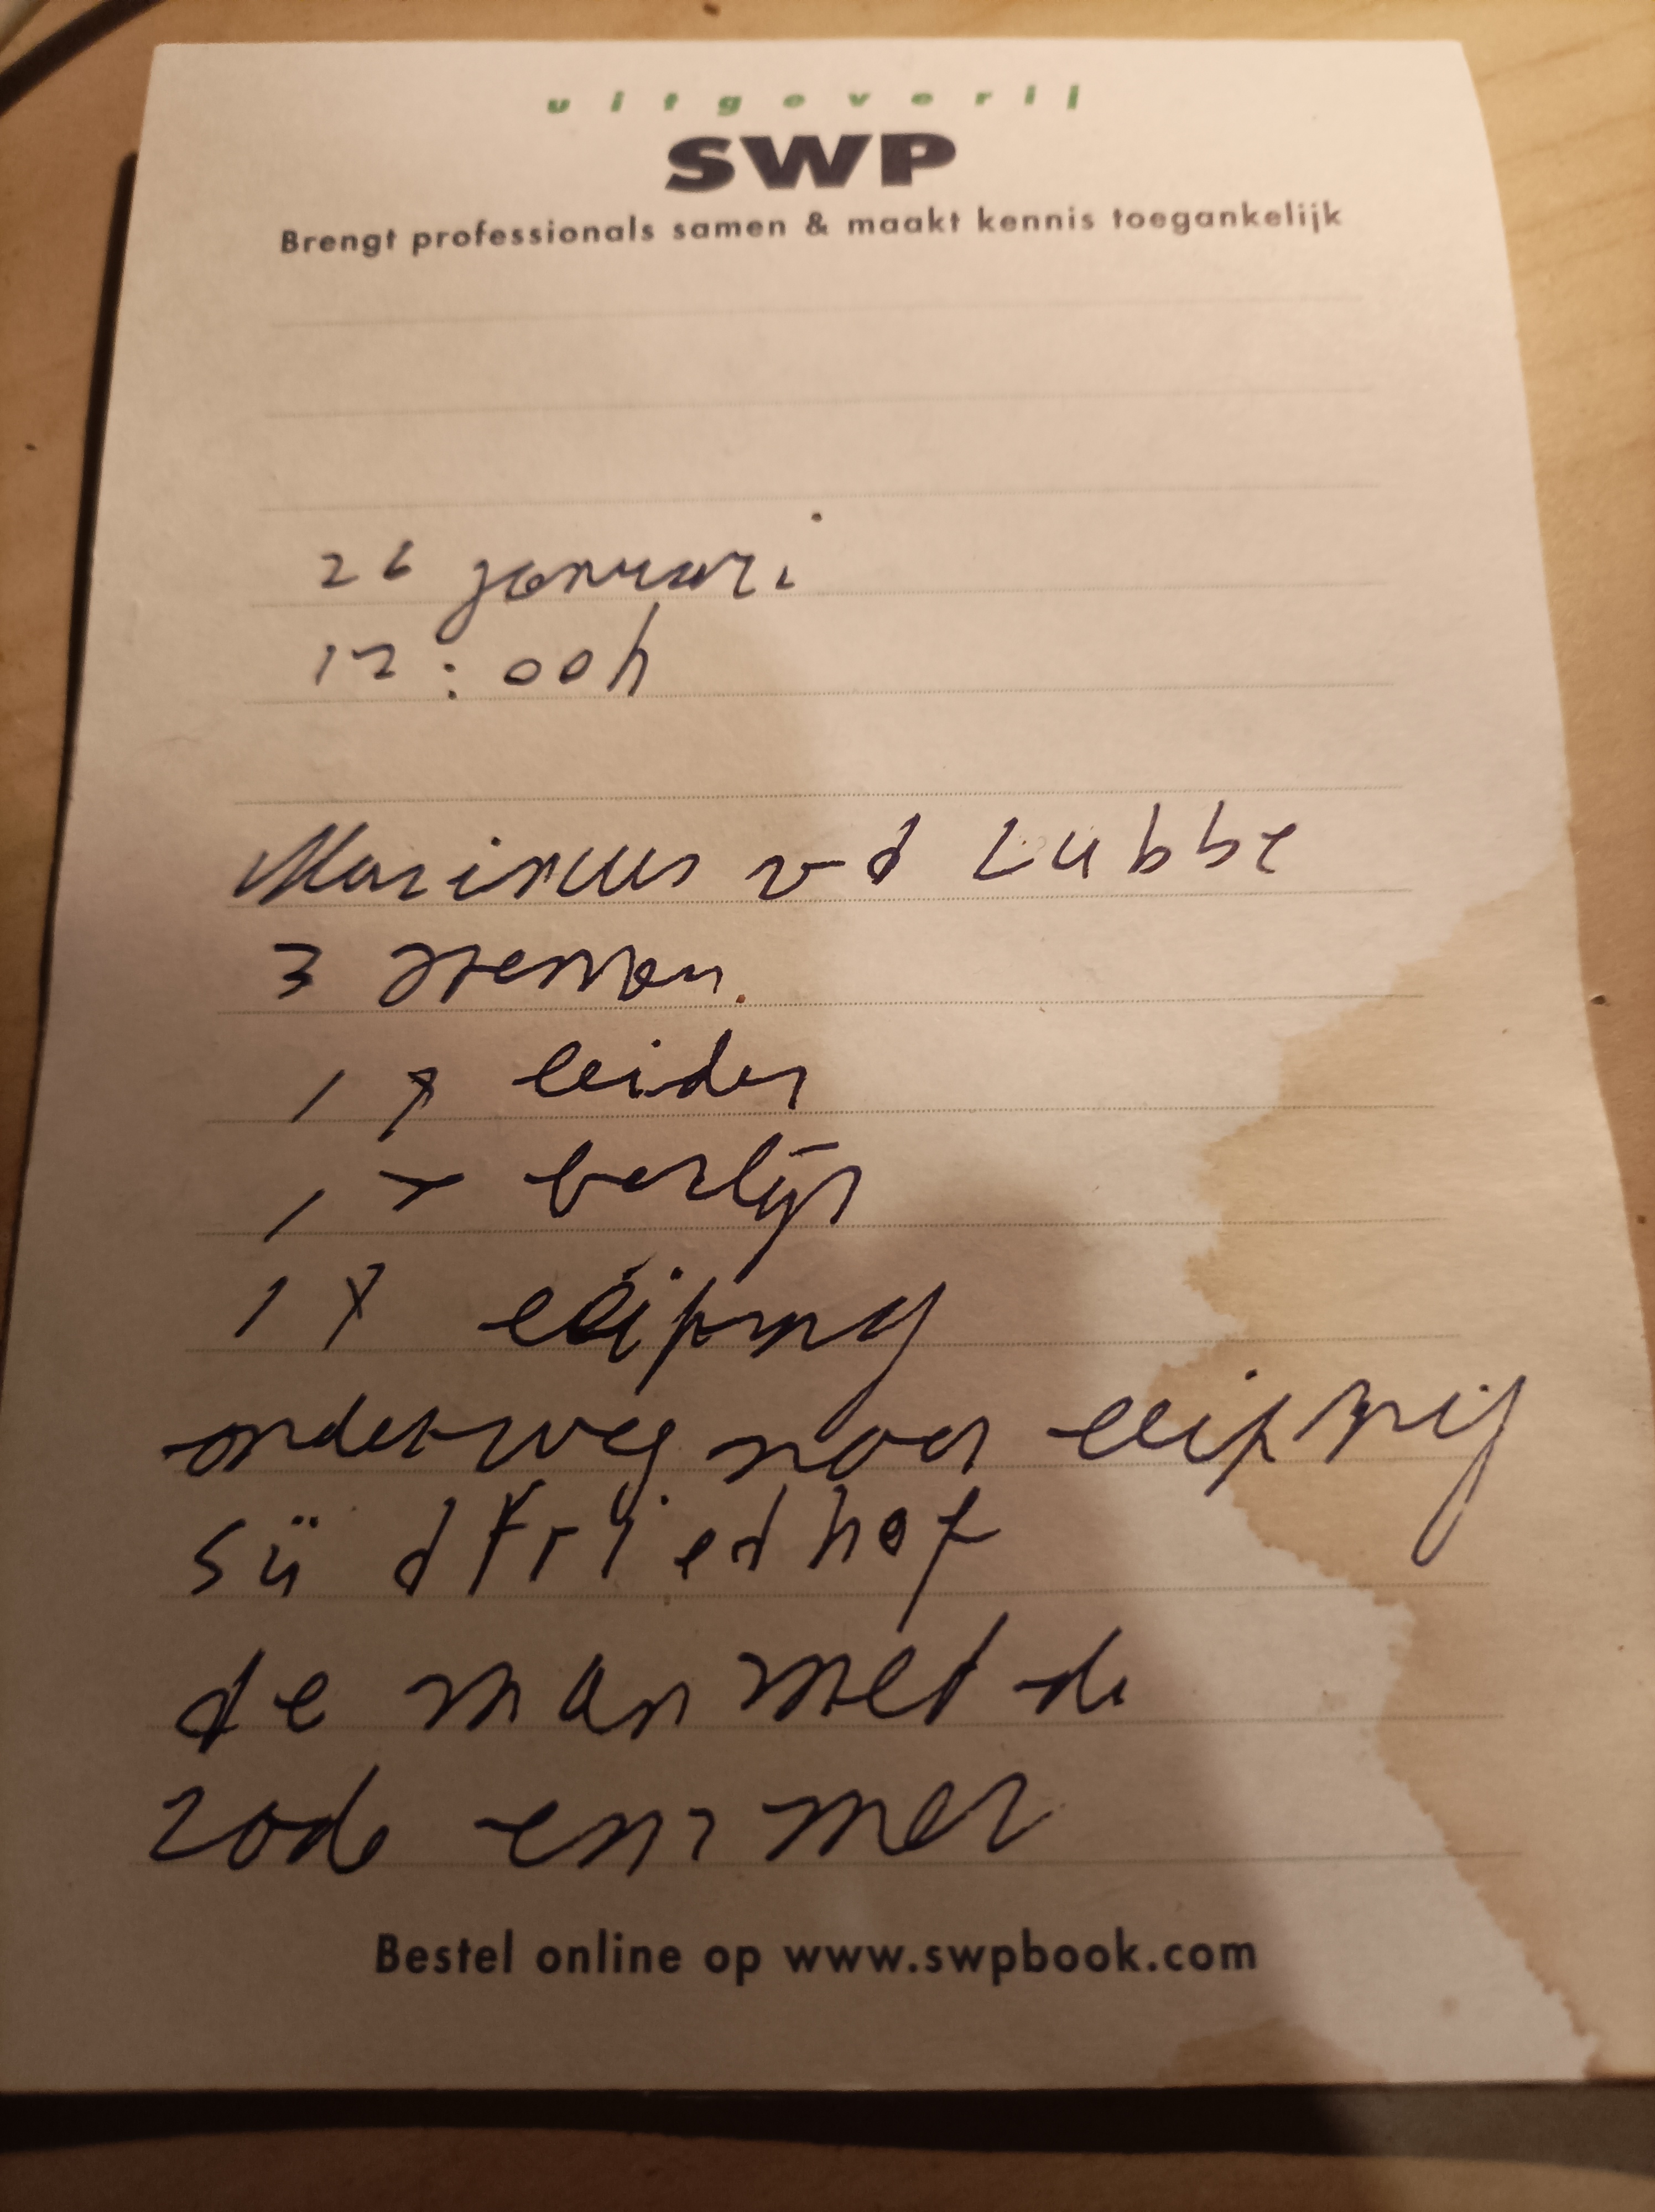 uitgeverij
SWP
Brengt professionals samen & maakt kennis toegankelijk
26 januari
12:00h
Marinus vd Lubbe
3 stenen.
1 x leiden
1 x berlijn
1 x leipzig
onderweg naar leipzig
südfriedhof
de man met de
rode emmer
Bestel online op www.swpbook.com